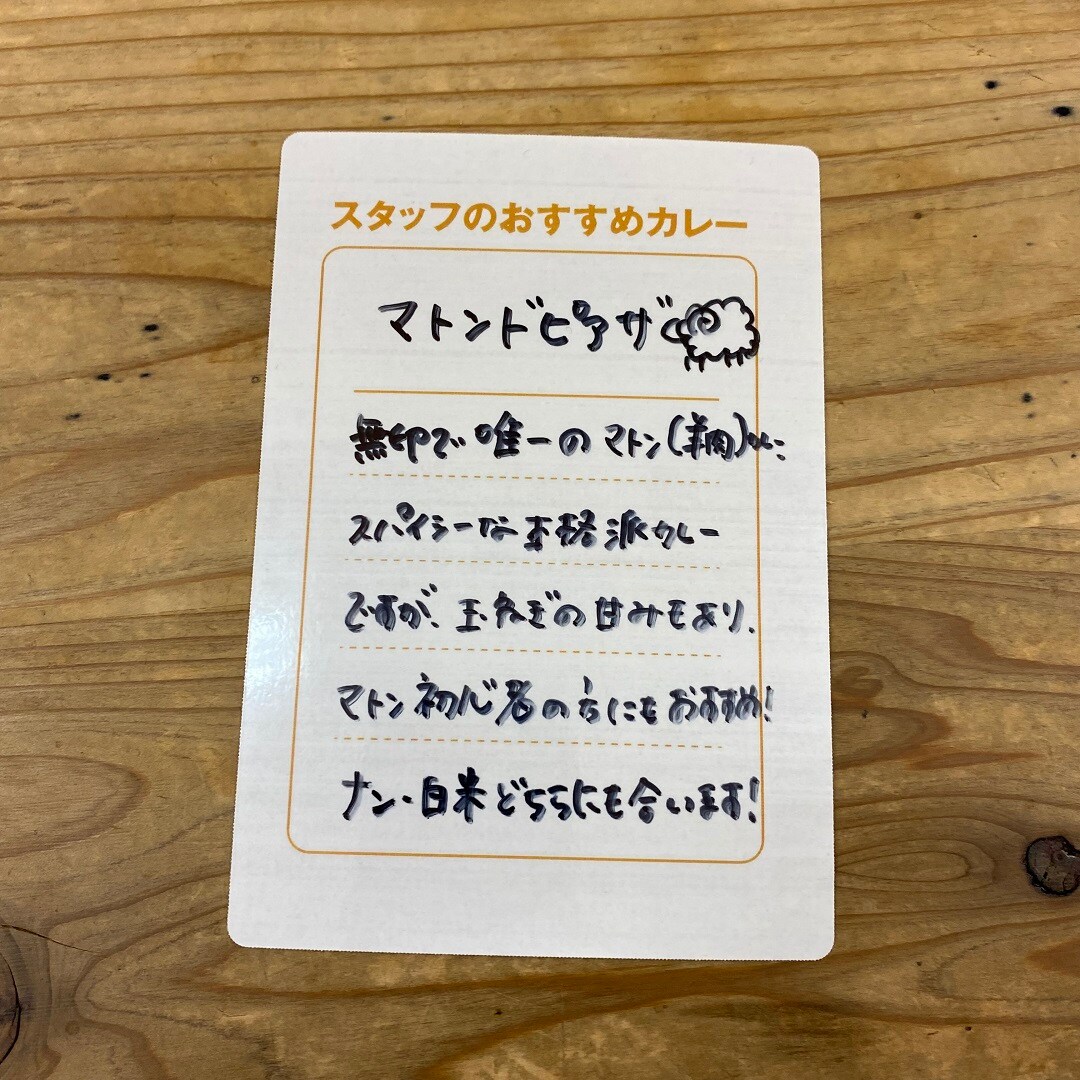 スタッフのおすすめカレー
マトンドピアザ
無印で唯一のマトン(羊肉)カレー
スパイシーな本格派カレー
ですが、玉ねぎの甘みもあり、
マトン初心者の方にもおすすめ!
ナン・白米どちらにも合います!